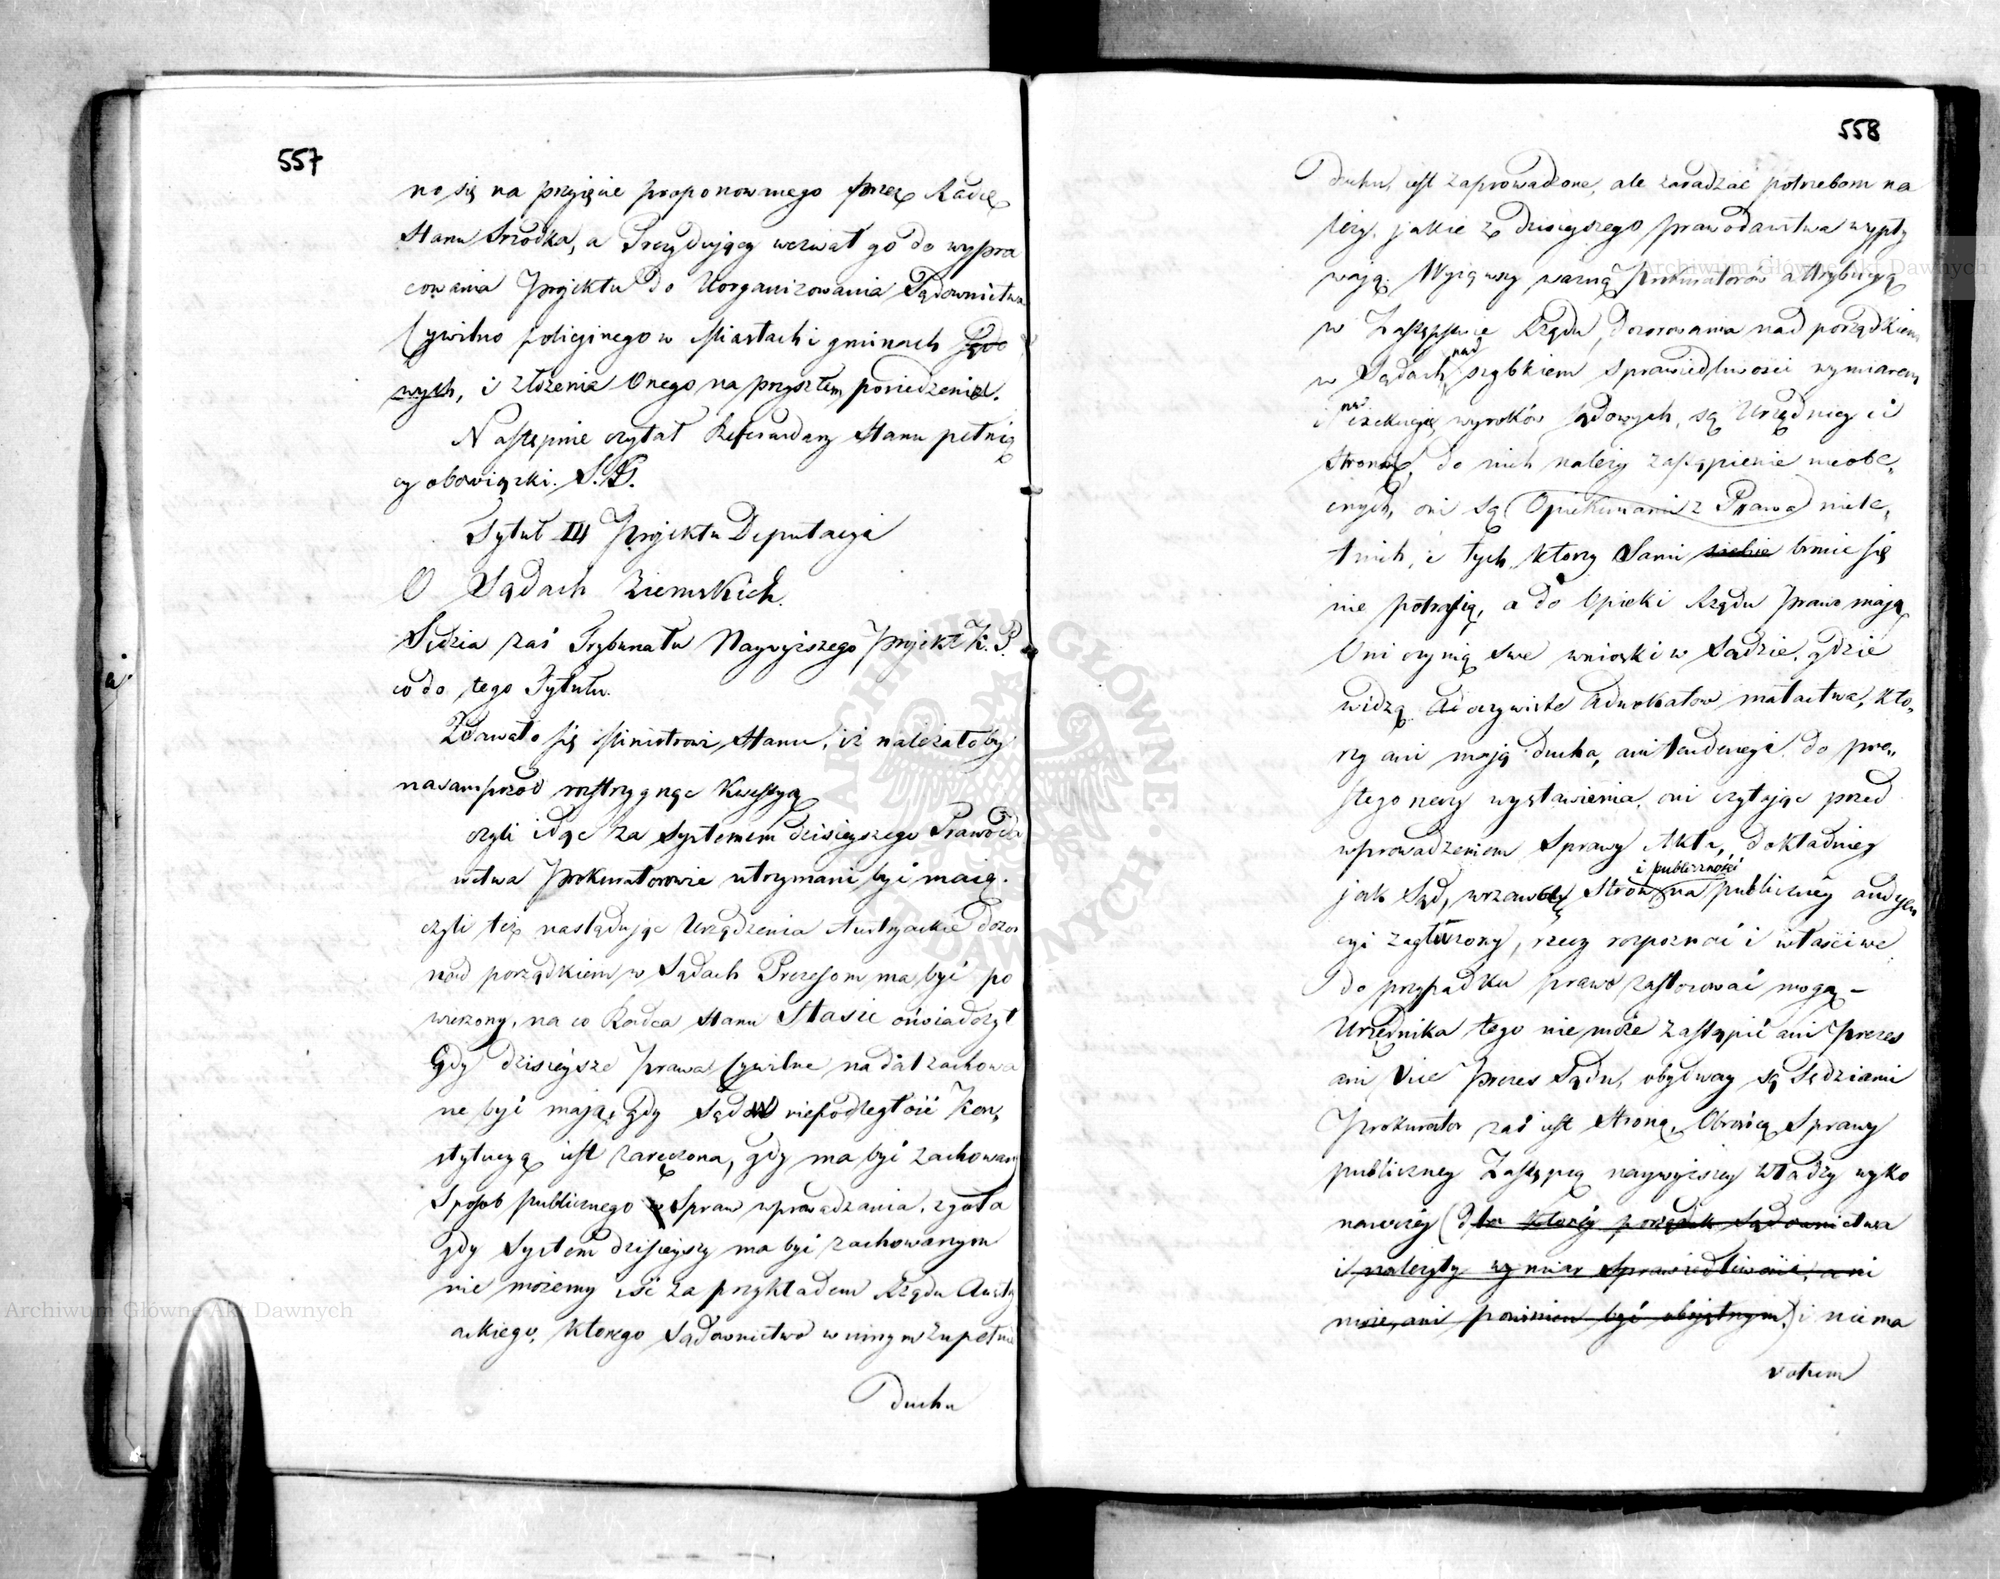 557
no się na przyięcie proponowanego przez Radcę
Stanu Srzodka, a Prezyduiący wezwał go do wypra
cowania Projektu do Uorganizowania Sądownictwa
Cywilno policyinego w Miastach i gminach Sądo
wych, i złożenia Onego na przyszłem posiedzeniu.
Następnie czytał Referendarz Stanu pełnią
cy obowiązki. S.G.
Tytuł III Projektu Deputacyi
O Sądach Ziemskich.
Sędzia zaś Trybunału Naywyższego projekt K. P.
co do tego Tytułu.
Zdawało się Ministrowi Stanu, iż należałoby
nasamprzod rozstrzygnąc kwestyą
czyli idąc za systemem dzisieyszego Prawoda
wctwa Prokuratorowie utrzymani być maią.
czyli też nasląduiąc Urządzenia Austryackie dozor
nad porządkiem w Sądach Prezesom ma być po
wierzony, na co Radca Stanu Stasic oświadczył
Gdy dzisieysze prawa Cywilne nadal zachowa
ne być maią, gdy Sądow niepodległość Kon,
stytucyą iest zaręczona, gdy ma być zachowany
Sposob publicznego Spraw wprowadzania, zgoła
gdy System dzisieyszy ma być zachowanym
nie możemy iść za przykładem Rządu Austry
ackiego, ktorego Sądownictwo w innym zupełnie
duchu
558
duchu iest zaprowadzone, ale zaradzać potrzebom na
leży, jakie z dzisieyszego prawodawstwa wypły
waią. Wyiąwszy ważną prokuratorow attrybucyą
w Zastępstwie Rządu, dozorowania nad porządkiem
w Sądach, nad szybkiem sprawiedliwości wymiarem
i nad exekucyą wyrokow Sądowych, są Urzędnicy ci
Stroną, do nich należy zastąpienie nieobe,
cnych, oni są Opiekunami z Prawa nielet,
tnich, i tych, ktorzy Sami siebie bronić się
nie potrafią, a do Opieki Rządu prawo maią
Oni czynią swe wnioski w Sądzie, gdzie
widzą oczywiste Adwokatow matactwa, kto,
rzy ani maią ducha, ani tendencyi do pro,,
stego rzeczy wystawienia, oni czytaiąc przed
wprowadzeniem Sprawy Akta, dokładniey
jak Sąd, wrzawą Stron i publiczności na publiczney audyen
cyi zagłuszony, rzeczy rozpoznać i właściwe
do przypadku prawo zastosować mogą –
Urzędnika tego nie może zastąpić ani Prezes
ani Vice Prezes Sądu, obydway są Sędziami
Prokurator zaś iest Stroną, Obrońcą Sprawy
publiczney Zastępcą naywyższey władzy wyko
nawczey (dla ktorey porządek Sądownictwa
i należyty wymiar Sprawiedliwości, ani
może, ani powinien być obojętnym) i nie ma
votum